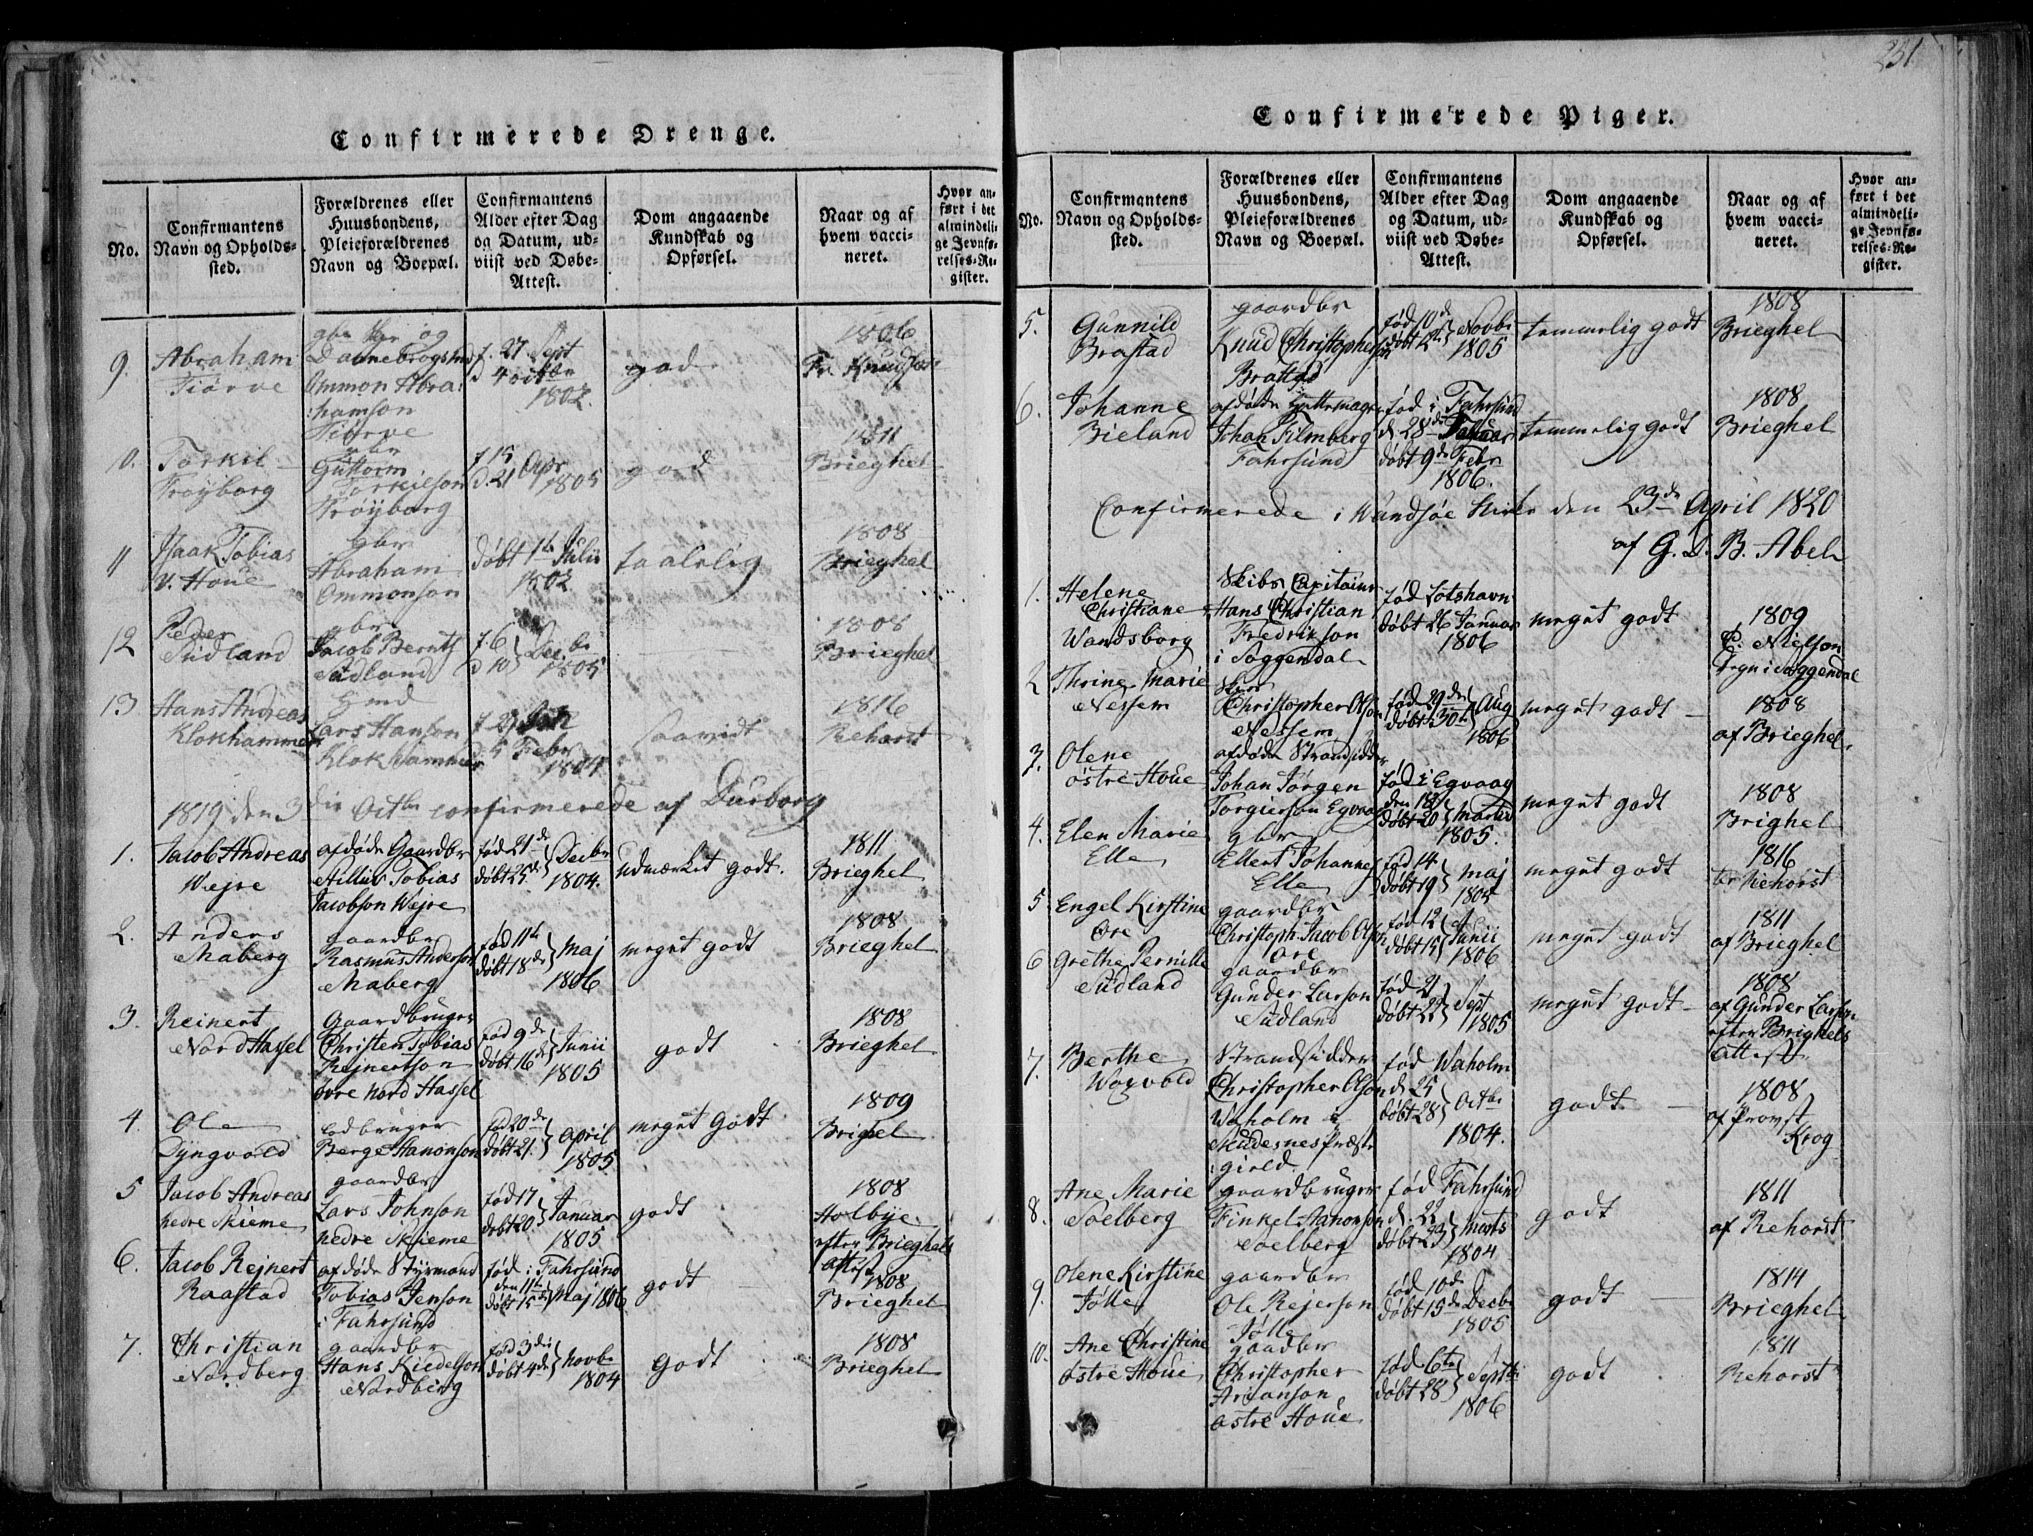 Confirmerede Drenge.
No.
Confirmantens
Navn og Opholds-
sted.
Forældrenes eller
Huusbondens,
Pleieforældrenes
Navn og Boepæl.
Confirmantens
Alder efter Dag
og Datum, ud-
viist ved Døbe-
Attest.
Dom angaaende
Kundskab og
Opførsel.
Naar og af
hvem vacci-
neret.
Hvor an-
ført i det
almindeli-
ge Jevnfø-
relses-Re-
gister.
9. Abraham
Tiørve
Dannebrogsmd
Ommon Abra-
hamson
Tiørve
f. 27 Sept
d 4 octbr
1802.
god
1806
Fr. Knudsen
0. Torkil
Trøyborg
gbr
Guttorm
Torkilson
Trøyborg
f 15
d. 21 Apr
1805
god
1811
Brieghel
11 Isaak Tobias
v. Houe
Gbr
Abraham
Ommonson
døbt 1te Julii
1802
taalelig
1808
Brieghel
12 Peder
Sudland
gbr
Jacob Bernts
Sudland
f. 6
d 10 Decbr
1805
1808
Brieghel
13 Hans Andreas
Klokhammer
Hmd
Lars Hanson
Klokhammer
f. 29 Jan
d. 5 Febr
1804
saavidt
1816
Rehorst
1819 den 3die Octbr confirmerede af Durborg
1. Jacob Andreas
Wejre
afdøde Gaardbr
Tobias
Jacobson Wejre
fød 21de
døbt 25de Decbr
1804.
udmærket godt.
1811
Brieghel
2. Anders
Maberg
gaardbr
Rasmus Anderson
Maberg
fød 11te
døbt 18de Maj
1806
meget godt
1808
Brieghel
3. Reinert
Nord Hassel
Gaardbruger
Christen Tobias
Rejnertson
øvre nord Hassel
fød 9de
døbt 16de Junii
1805
godt
1808
Brieghel
4. Ole
Dyngvold
Berge Hanonson
fød 20de
døbt 21. April
1805
meget godt
1809
Brighel
5 Jacob Andreas
nedre Skieme
gaardbr
Lars Johnson
nedre Skieme
fød 17
døbt 20 Januar
1805
godt
1808
Holbye
efter Brieghels
attest
6. Jacob Rejnert
Raastad
afdøde Styrmand
Tobias Jenson
i Fahrsund
fød i Fahrsund
den 11te
døbt 15de Maj 1806
godt
1808
Brieghel
7. Christian
Nordberg
gaardbr
Hans Kiedelson
Nordberg
fød 3die
døbt 4de Novbr
1804
godt
1808
Brieghel
231
Confirmerede Piger.
No.
Confirmantens
Navn og Opholds-
sted.
Forældrenes eller
Huusbondens,
Pleieforældrenes
Navn og Boepæl.
Confirmantens
Alder efter Dag
og Datum, ud-
viist ved Døbe-
Attest.
Dom angaaende
Kundskab og
Opførsel.
Naar og af
hvem vacci-
neret.
Hvor an-
ført i det
almindeli-
ge Jevnfø-
relses-Re-
gister.
5. Gunnild
Brastad
gaardbr
Knud Christopherson
Brastad
fød 10de
døbt 12te Novbr
1805
temmelig godt
1808
Brieghel
6. Johanne
Bieland
afdøde
Johan Filmberg
Fahrsund
fød i Fahrsund
d. 28de Januar
døbt 9de Febr
1806.
temmelig godt
1808
Brieghel
Confirmerede i Wandsøe Kirke den 23de April 1820
af G. D. B. Abel
1. Helene
Christiane
Wandsborg
Skibs Capitain
Hans Christian
Fredrikson
i Soggendal
fød Lotshavn
døbt 26 Januar
1806
meget godt
1809
P. Nielson
Degn i Soggendal
2 Thrine Marie
Nessem
Christopher Olson
Nessem
fød 29de
døbt 30te Aug
1806
meget godt
1808
af Brieghel.
3. Olene
østre Houe
afdøde Strandsidder
Johan Jørgen
Torgierson Egvaag
fød i Egvaag
den 18de
døbt 20 Martii
1805.
meget godt
1808
Brighel
4. Elen Marie
Elle
gbr
Ellert Johannes
Elle
fød 14
døbt 19 Maj
1804
meget godt
1816
Rehorst
5 Engel Kirstine
Ore
gaardbr
Christoph. Jacob Olson
Ore
fød 12
døbt 15 Junii
1806
meget godt
1811
af Brieghel
6 Grethe Pernille
Sudland
gaardbr
Gunder Larson
Sudland
fød 21
døbt 22 Sept
1805
meget godt
1808
af Gunder Larson
efter Brighels
attest
7. Berthe
Woxvold
Strandsidder
Christopher Olson
Waholm i
Skudesnes Præste
gield
fød Waholm
d. 25
døbt 28 Octbr
1804.
godt
1808
af Provst
Krog
8. Ane Marie
Soelberg
gaardbruger
Finkel Aanonson
Soelberg
fød Fahrsund
d. 22
døbt 23 Marts
1804
godt
1811
af Rehorst
9. Olene Kirstine
Jølle
gaardbr
Ole Rejerson
Jølle
fød 10de
døbt 15de Decbr
1805
godt
1814
Brieghel
10. Ane Christine
østre Houe
gaardbr
Christopher
Arianson
østre Houe
fød 6te
døbt 28 Septbr
1806
godt
1811
Rehorst